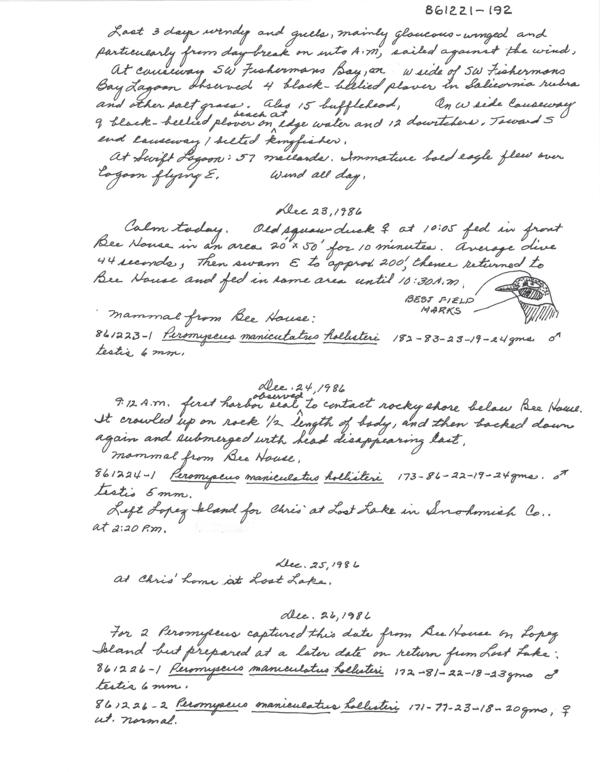 861221-192
Last 3 days windy and gulls, mainly glaucous-winged and
particularly from day break on into A.M, sailed against the wind.
At causeway SW Fishermans Bay, on W side of SW Fishermans
Bay Lagoon observed 4 black-bellied plover in Salicornia rubra
and other salt grass. Also 15 bufflehead, On W side Causeway
9 black-bellied plover beach at on edge water and 12 dowitchers. Toward S
end causeway 1 belted kingfisher.
At Swift Lagoon: 57 mallards. Immature bald eagle flew over
lagoon flying E. Wind all day.
Dec 23, 1986
Calm today. Old squaw duck ♀ at 10:05 fed in front
Bee House in an area 20' x 50' for 10 minutes. Average dive
44 seconds, Then swam E to approx 200', thence returned to
Bee House and fed in same area until 10:30 A.M.
BEST FIELD
MARKS
Mammal from Bee House:
861223-1 Peromyscus maniculatus hollisteri 182-83-23-19-24gms ♂
testis 6 mm.
Dec. 24, 1986
9:12 A.M. first harbor seal observed to contact rocky shore below Bee House.
It crawled up on rock 1/2 length of body, and then backed down
again and submerged with head disappearing last.
Mammal from Bee House.
861224-1 Peromyscus maniculatus hollisteri 173-86-22-19-24gms. ♂
testis 5 mm.
Left Lopez Island for Chris' at Lost Lake in Snohomish Co..
at 2:20 P.m.
Dec. 25, 1986
At Chris' home at Lost Lake.
Dec. 26, 1986
For 2 Peromyscus captured this date from Bee House on Lopez
Island but prepared at a later date on return from Lost Lake:
861226-1 Peromyscus maniculatus hollisteri 172-81-22-18-23gms ♂
testis 6 mm.
861226-2 Peromyscus maniculatus hollisteri 171-77-23-18-20gms, ♀
ut. normal.